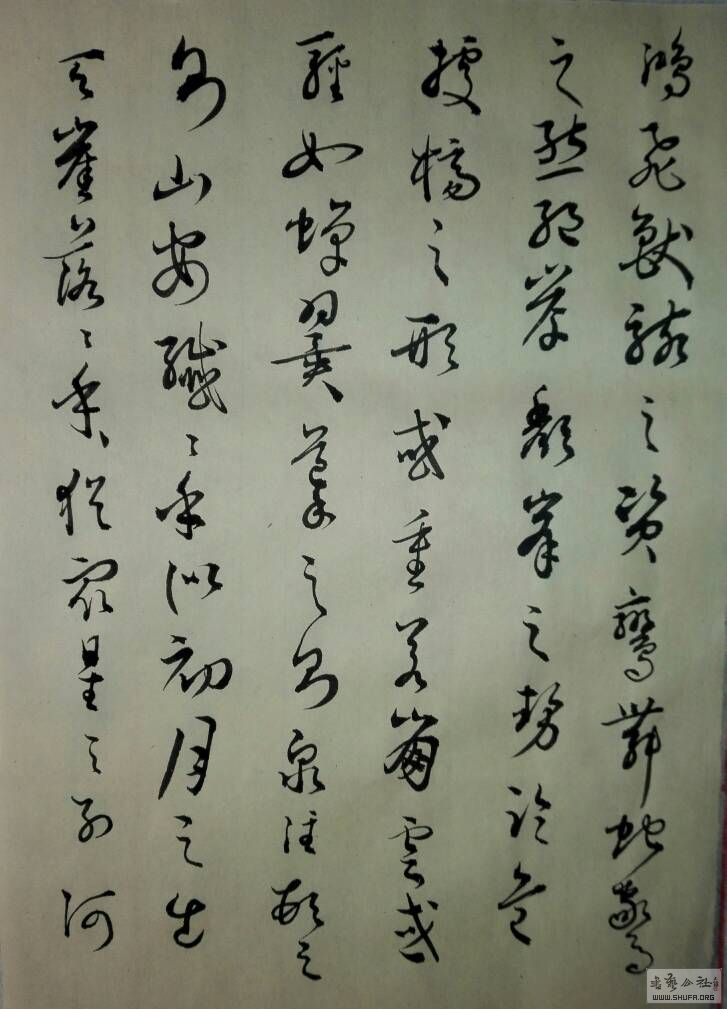 鸿飛獸駭之資鸞舞蛇驚
之態絕岸頹峯之勢臨危
據槁之形或重若崩雲或
輕如蟬翼導之則泉注頓之
則山安纖纖乎似初月之出
天崖落落乎猶衆星之列河
書藝公社
WWW.SHUFA.ORG